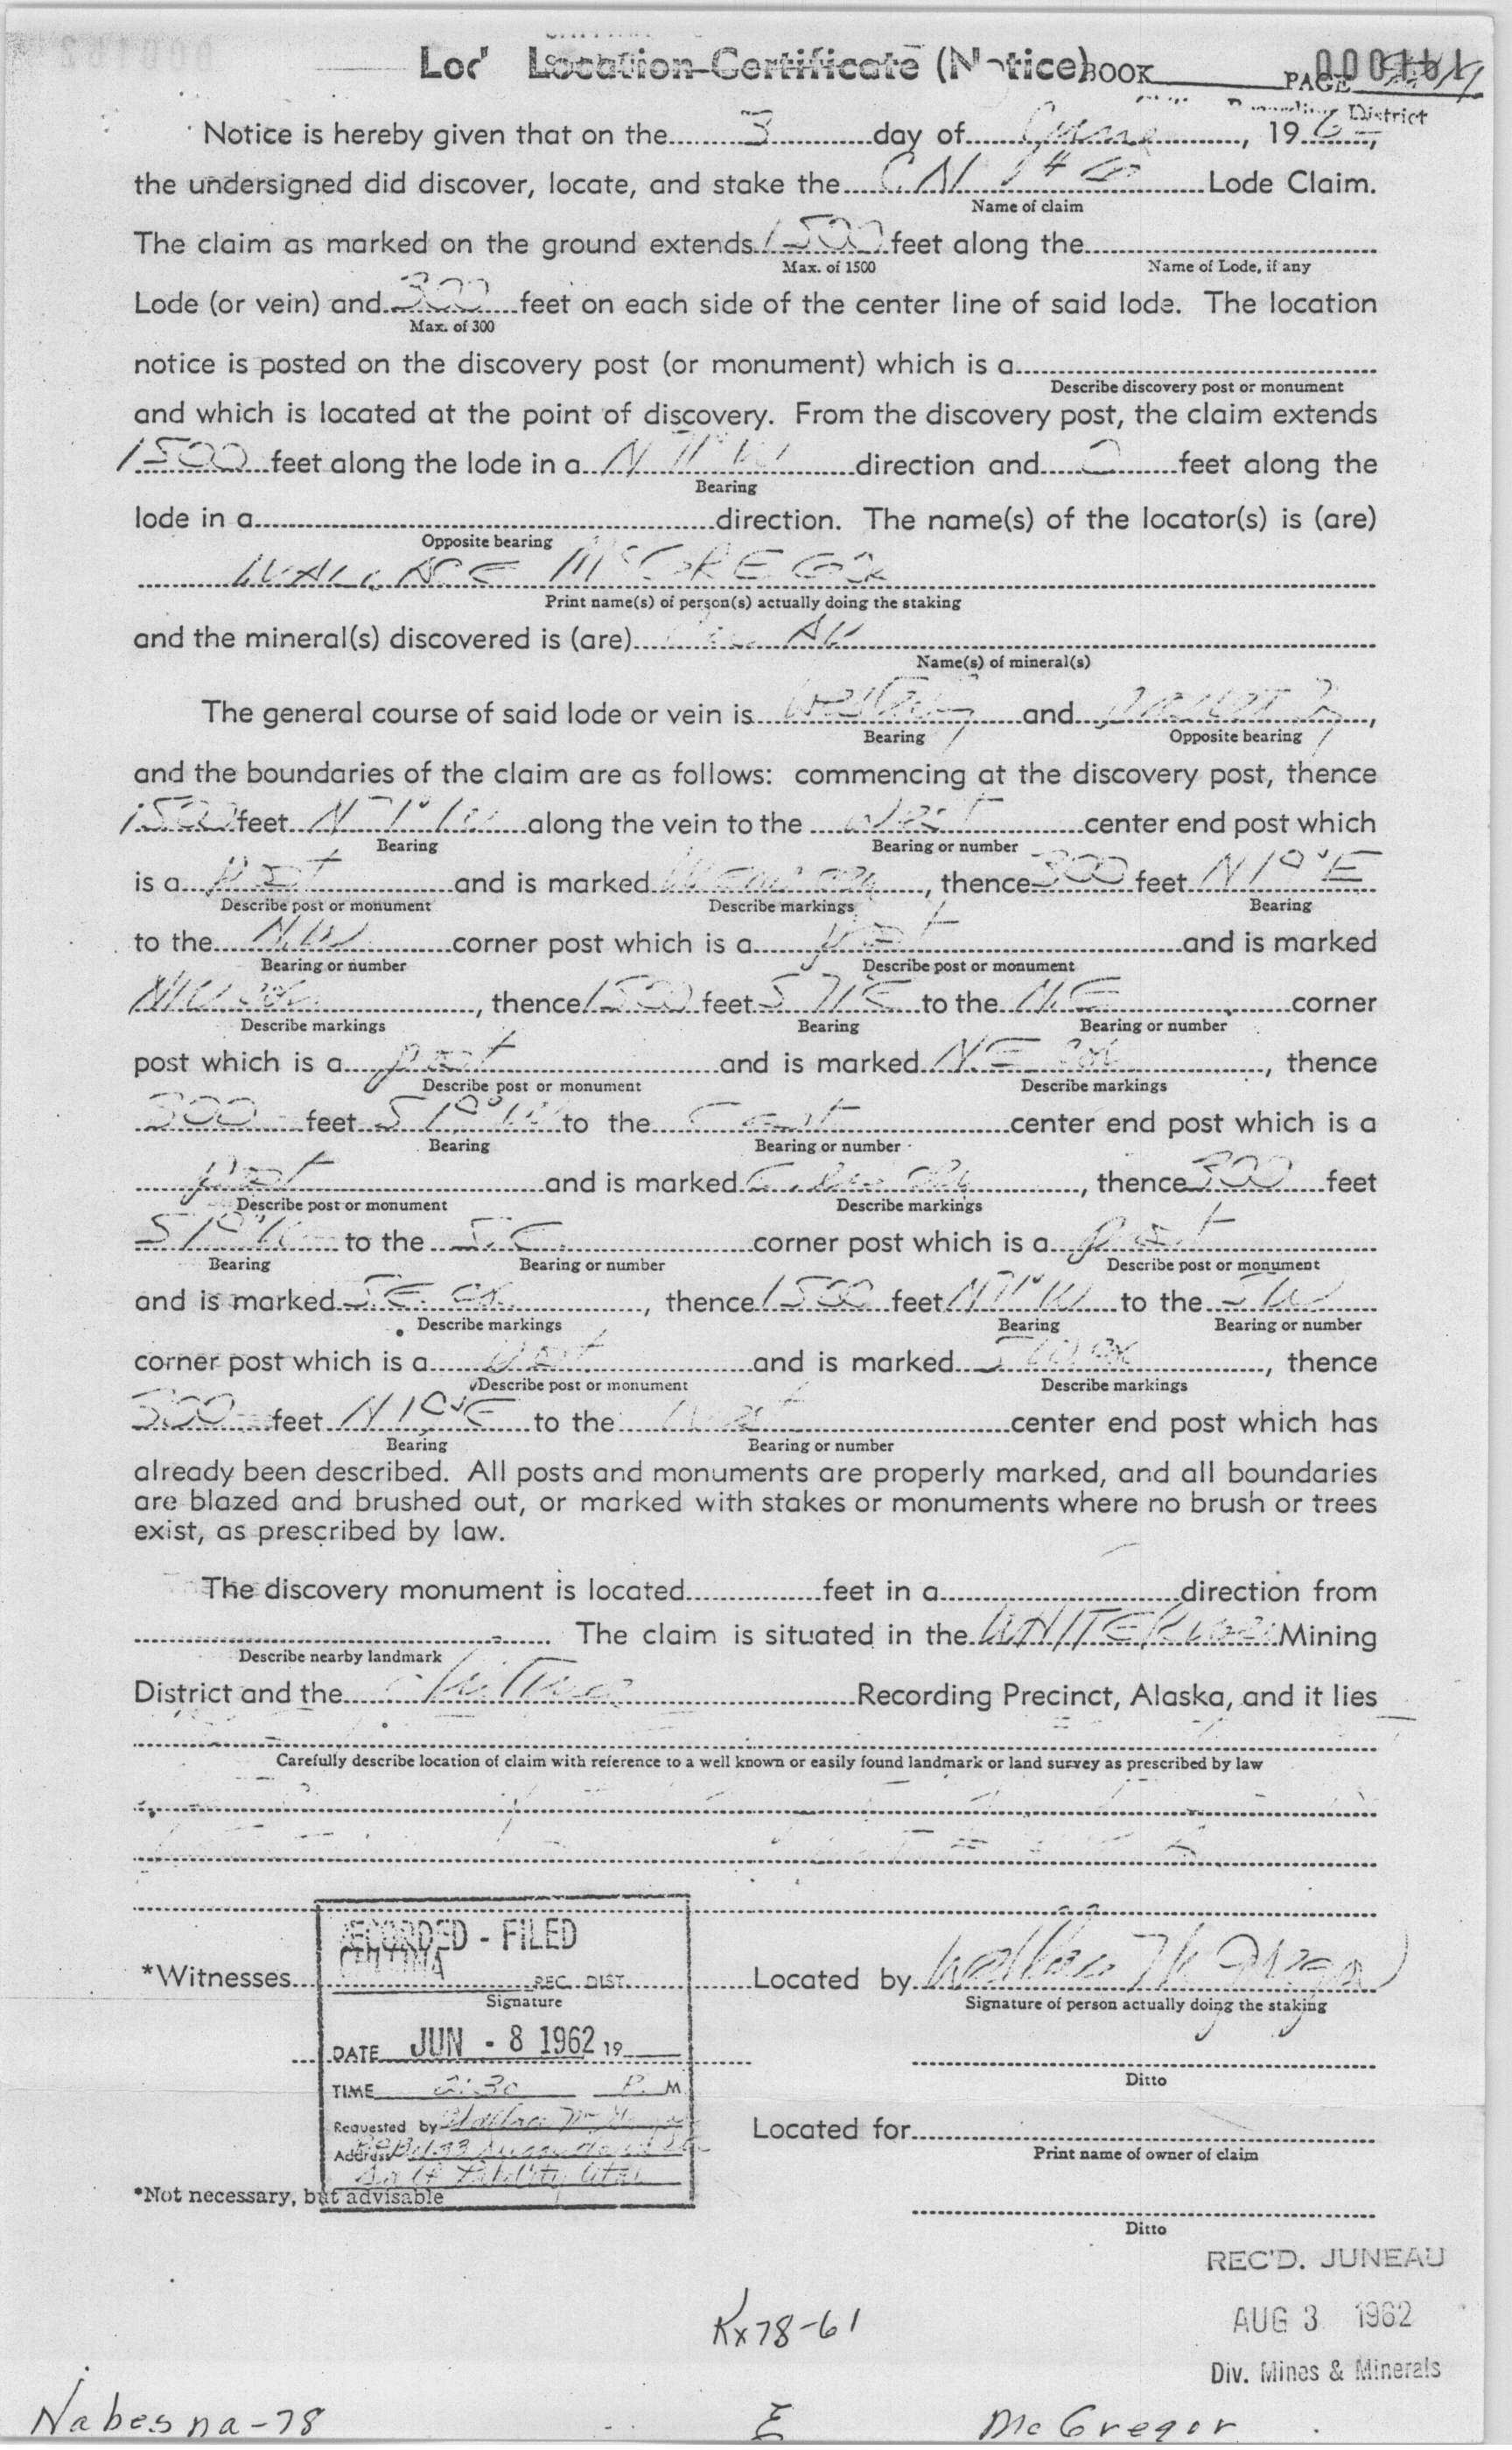 Location Certificate (Notice) BOOK PAGE
District
Notice is hereby given that on the 3 day of June, 196
the undersigned did discover, locate, and stake the CN Lode Claim.
Name of claim
The claim as marked on the ground extends 1500 feet along the
Max. of 1500 Name of Lode, if any
Lode (or vein) and 300 feet on each side of the center line of said lode. The location
Max. of 300
notice is posted on the discovery post (or monument) which is a
Describe discovery post or monument
and which is located at the point of discovery. From the discovery post, the claim extends
1500 feet along the lode in a N 71° W direction and 0 feet along the
Bearing
lode in a direction. The name(s) of the locator(s) is (are)
Opposite bearing
WALLACE McGREGOR
Print name(s) of person(s) actually doing the staking
and the mineral(s) discovered is (are) Au
Name(s) of mineral(s)
The general course of said lode or vein is Westerly and
Bearing Opposite bearing
and the boundaries of the claim are as follows: commencing at the discovery post, thence
1500 feet N 71° W along the vein to the West center end post which
Bearing Bearing or number
is a post and is marked, thence 300 feet N 19° E
Describe post or monument Describe markings Bearing
to the NW corner post which is a post and is marked
Bearing or number Describe post or monument
NW cor, thence 1500 feet S 71 E to the N.E. corner
Describe markings Bearing Bearing or number
post which is a post and is marked NE cor, thence
Describe post or monument Describe markings
300 feet S 19° W to the East center end post which is a
Bearing Bearing or number
post and is marked, thence 300 feet
Describe post or monument Describe markings
S 19° W to the S.E. corner post which is a post
Bearing Bearing or number Describe post or monument
and is marked SE cor, thence 1500 feet N 71° W to the SW
Describe markings Bearing Bearing or number
corner post which is a post and is marked SW cor, thence
Describe post or monument Describe markings
300 feet N 19° E to the West center end post which has
Bearing Bearing or number
already been described. All posts and monuments are properly marked, and all boundaries
are blazed and brushed out, or marked with stakes or monuments where no brush or trees
exist, as prescribed by law.
The discovery monument is located feet in a direction from
. The claim is situated in the WHITE River Mining
Describe nearby landmark
District and the Chitina Recording Precinct, Alaska, and it lies
Carefully describe location of claim with reference to a well known or easily found landmark or land survey as prescribed by law
RECORDED - FILED
CHITINA
*Witnesses REC. DIST. Located by Wallace McGregor
Signature Signature of person actually doing the staking
DATE JUN - 8 1962 19
Ditto
TIME 2:30 P. M.
Requested by Wallace McGregor Located for
Address Print name of owner of claim
*Not necessary, but advisable
Ditto
REC'D. JUNEAU
AUG 3 1962
Kx78-61
Div. Mines & Minerals
Nabesna-78 E McGregor